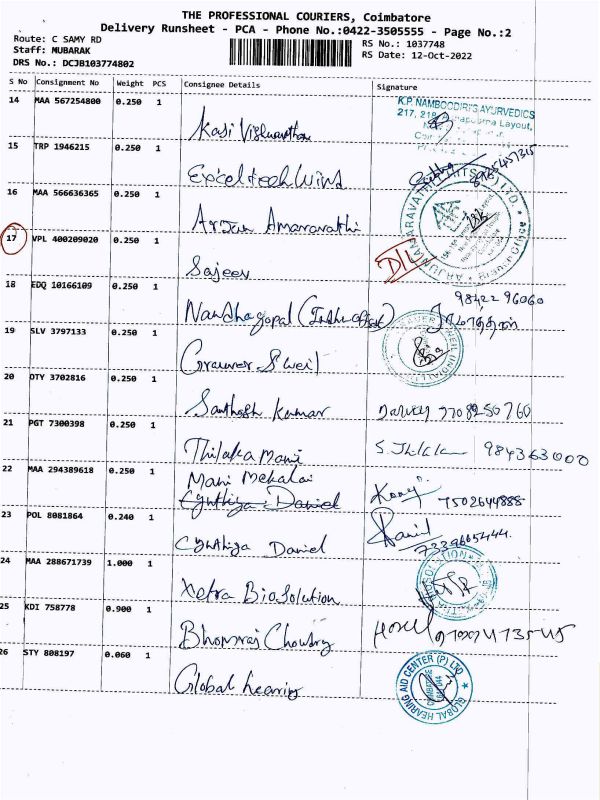 THE PROFESSIONAL COURIERS, Coimbatore
Delivery Runsheet - PCA - Phone No.:0422-3505555 - Page No.:2
Route: C SAMY RD
RS No.: 1037748
Staff: MUBARAK
RS Date: 12-Oct-2022
DRS No.: DCJB103774802
S No Consignment No Weight PCS Consignee Details Signature
14 MAA 567254800 0.250 1
K.P. NAMBOODIRI'S AYURVEDICS
217, 218, Layout,
Kasi Viswanathan
15 TRP 1946215 0.250 1
Exceltech Wind
16 MAA 566636365 0.250 1
Arjun Amaravathi
17 VPL 400209020 0.250 1
Sajeev
D/L
18 EDQ 10166109 0.250 1
98422 96060
Nandhagopal
19 SLV 3797133 0.250 1
Grauer & Weil
20 OTY 3702816 0.250 1
Santhosh Kumar 9708250760
21 PGT 7300398 0.250 1
Thilaka Mani
22 MAA 294389618 0.250 1
Mani Mekalai
Cynthiya Daniel
7502644888
23 POL 8081864 0.240 1
Cynthiya Daniel
24 MAA 288671739 1.000 1
Xetra BioSolution
25 KDI 758778 0.900 1
Bhomraj Choudry
26 STY 808197 0.060 1
Global hearing
GLOBAL HEARING AID CENTER (P) LTD